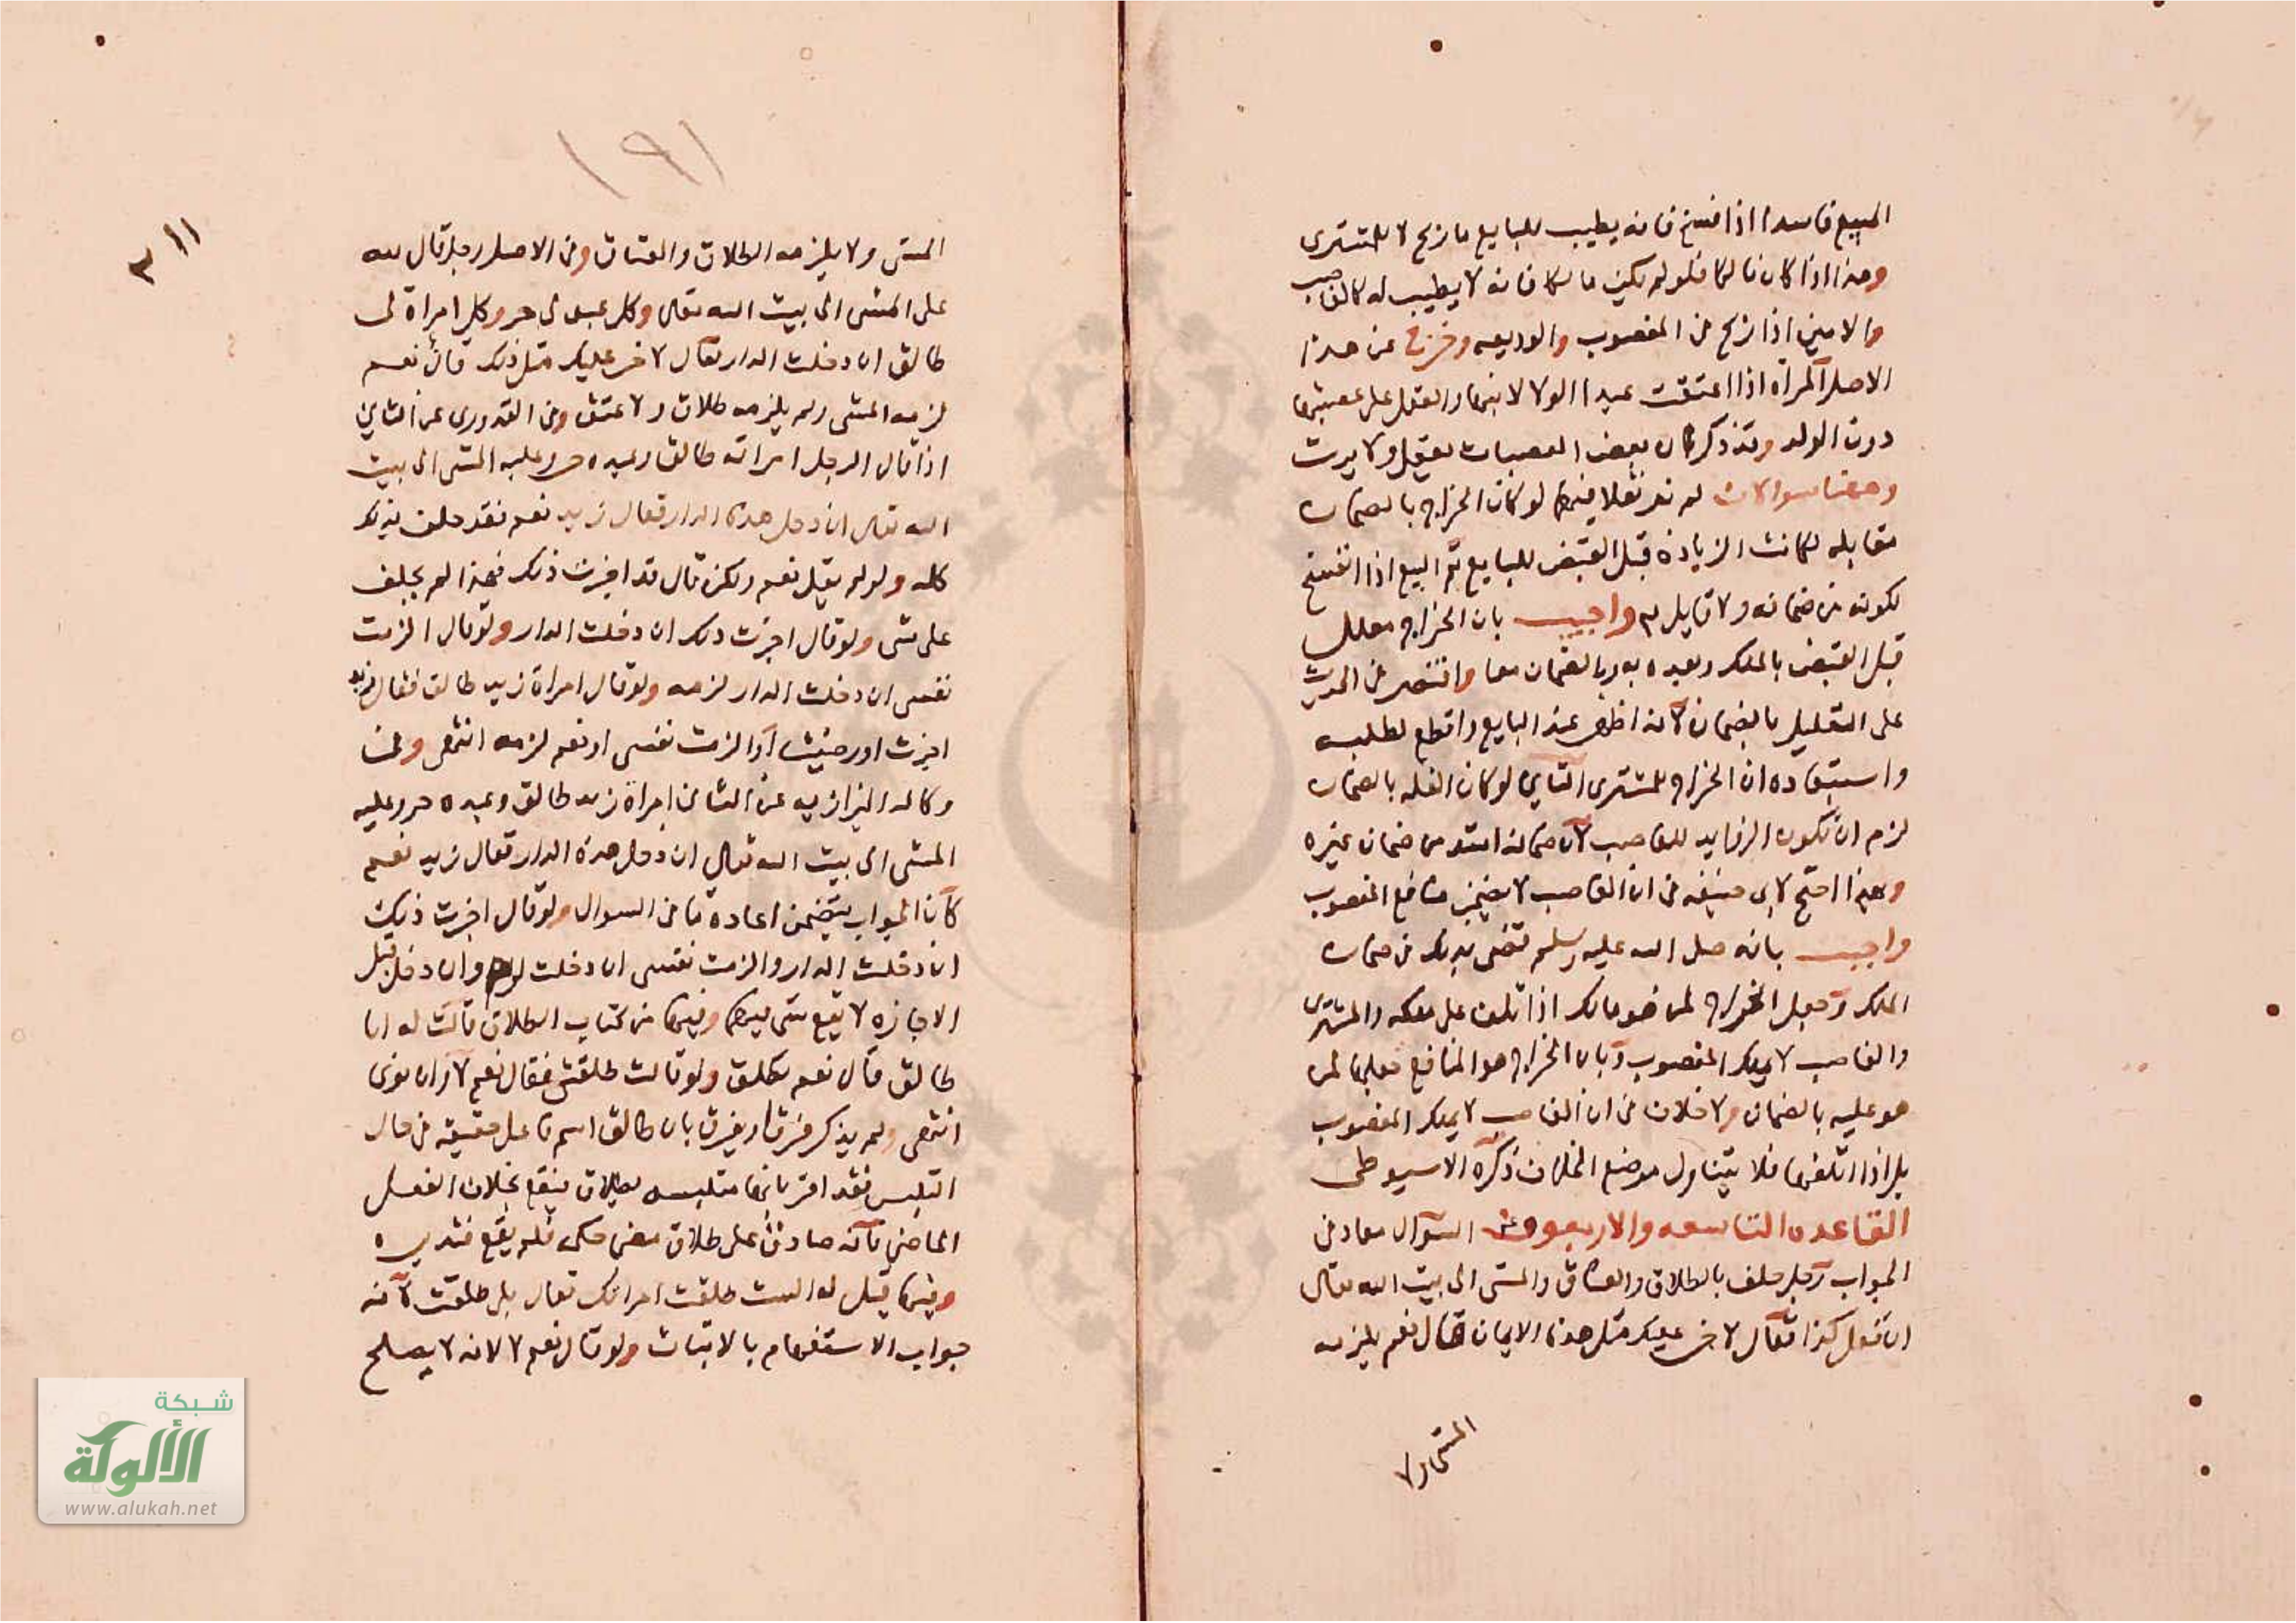 المبيع فاسدا اذا فسخ فانه يطيب للبايع ما ربح لا للمشترى
وهذا اذا كان مالكا فلو لم يكن مالكا فانه لا يطيب له كالغاصب
والامين اذا ربح فى المغصوب والوديعه وخرج عن هذا
الاصل المرأة اذا اعتقت عبدا الولا لابنها والعقل على عصبتها
دون الولد وقد ذكر كان بعض العصبات يعقل ولا يرث
وههنا سوالات لم نر نقلا فيها لو كان الخراج بالضمان
مقابله لكانت الزياده قبل القبض للبايع تم البيع اذا انفسخ
لكونه من ضمانه ولا قايل به واجيب بان الخراج معلل
قبل القبض بالملك وبعده به وبالضمان معا واقتصر فى الحديث
على التعليل بالضمان لانه اظهر عند البايع واقطع لطلبه
واستبعاده ان الخراج للمشترى الثانى لو كان الغله بالضمان
لزم ان تكون الزوايد للغاصب لان ضمانه اشد من ضمان غيره
وبهذا احتج لابى حنيفه فى ان الغاصب لا يضمن منافع المغصوب
واجيب بانه صلى الله عليه وسلم قضى بذلك فى ضمان
الملك وجعل الخراج لمن هو مالك اذا تلف على ملكه والمشترى
والغاصب لا يملك المغصوب وبان الخراج هو المنافع جعلها لمن
هو عليه بالضمان ولا خلاف فى ان الغاصب لا يملك المغصوب
بل اذا اتلفها فلا يتناول موضع الخلاف ذكره الاسيوطى
القاعده التاسعه والاربعون السوال معاد فى
الجواب رجل حلف بالطلاق والعتاق والمشى الى بيت الله تعالى
ان فعل كذا فقال لاخر عليك مثل هذه الايمان فقال نعم يلزمه
المشى ولا
١٩١
٣١١
المشى ولا يلزمه الطلاق والعتاق وفى الاصل رجل قال لله
على المشى الى بيت الله تعالى وكل عبد لى حر وكل امراة لى
طالق ان دخلت الدار فقال لاخر عليك مثل ذلك فان نعم
لزمه المشى ولم يلزمه طلاق ولا عتق وفى القدورى عن الثانى
اذا قال الرجل امراته طالق وعبده حر وعليه المشى الى بيت
الله تعالى ان دخل هذه الدار فقال زيد نعم فقد حلف بذلك
كله ولو لم يقل نعم ولكن قال قد اجزت ذلك فهذا لم يحلف
على شى ولو قال اجزت ذلك ان دخلت الدار ولو قال الزمت
نفسى ان دخلت الدار لزمه ولو قال امراة زيد طالق فقال زيد
اجزت او رضيت او الزمت نفسى او نعم لزمه انتهى وفى
وكاله البزازيه عن الثانى امراة زيد طالق وعبده حر وعليه
المشى الى بيت الله تعالى ان دخل هذه الدار فقال زيد نعم
كان الجواب يتضمن اعادة ما فى السوال ولو قال اجزت ذلك
ان دخلت الدار والزمت نفسى ان دخلت لزم وان دخل قبل
الاجازه لا يقع شى فيها وفيها من كتاب الطلاق قالت له انا
طالق فقال نعم تطلق ولو قالت طلقنى فقال نعم لا وان نوى
انتهى ولم يذكر فرقا ويفرق بان طالق اسم فاعل حقيقة فى حال
التلبس فقد اقر بانها متلبسه بطلاق فيقع بخلاف الفعل
الماضى فانه صادق على طلاق مضى فلم يقع فتدبره
وفيها قيل له الست طلقت امراتك فقال بلى طلقت لانه
جواب الاستفهام بالاثبات ولو قال نعم لا لانه لا يصلح
شبكة
الألوكة
www.alukah.net